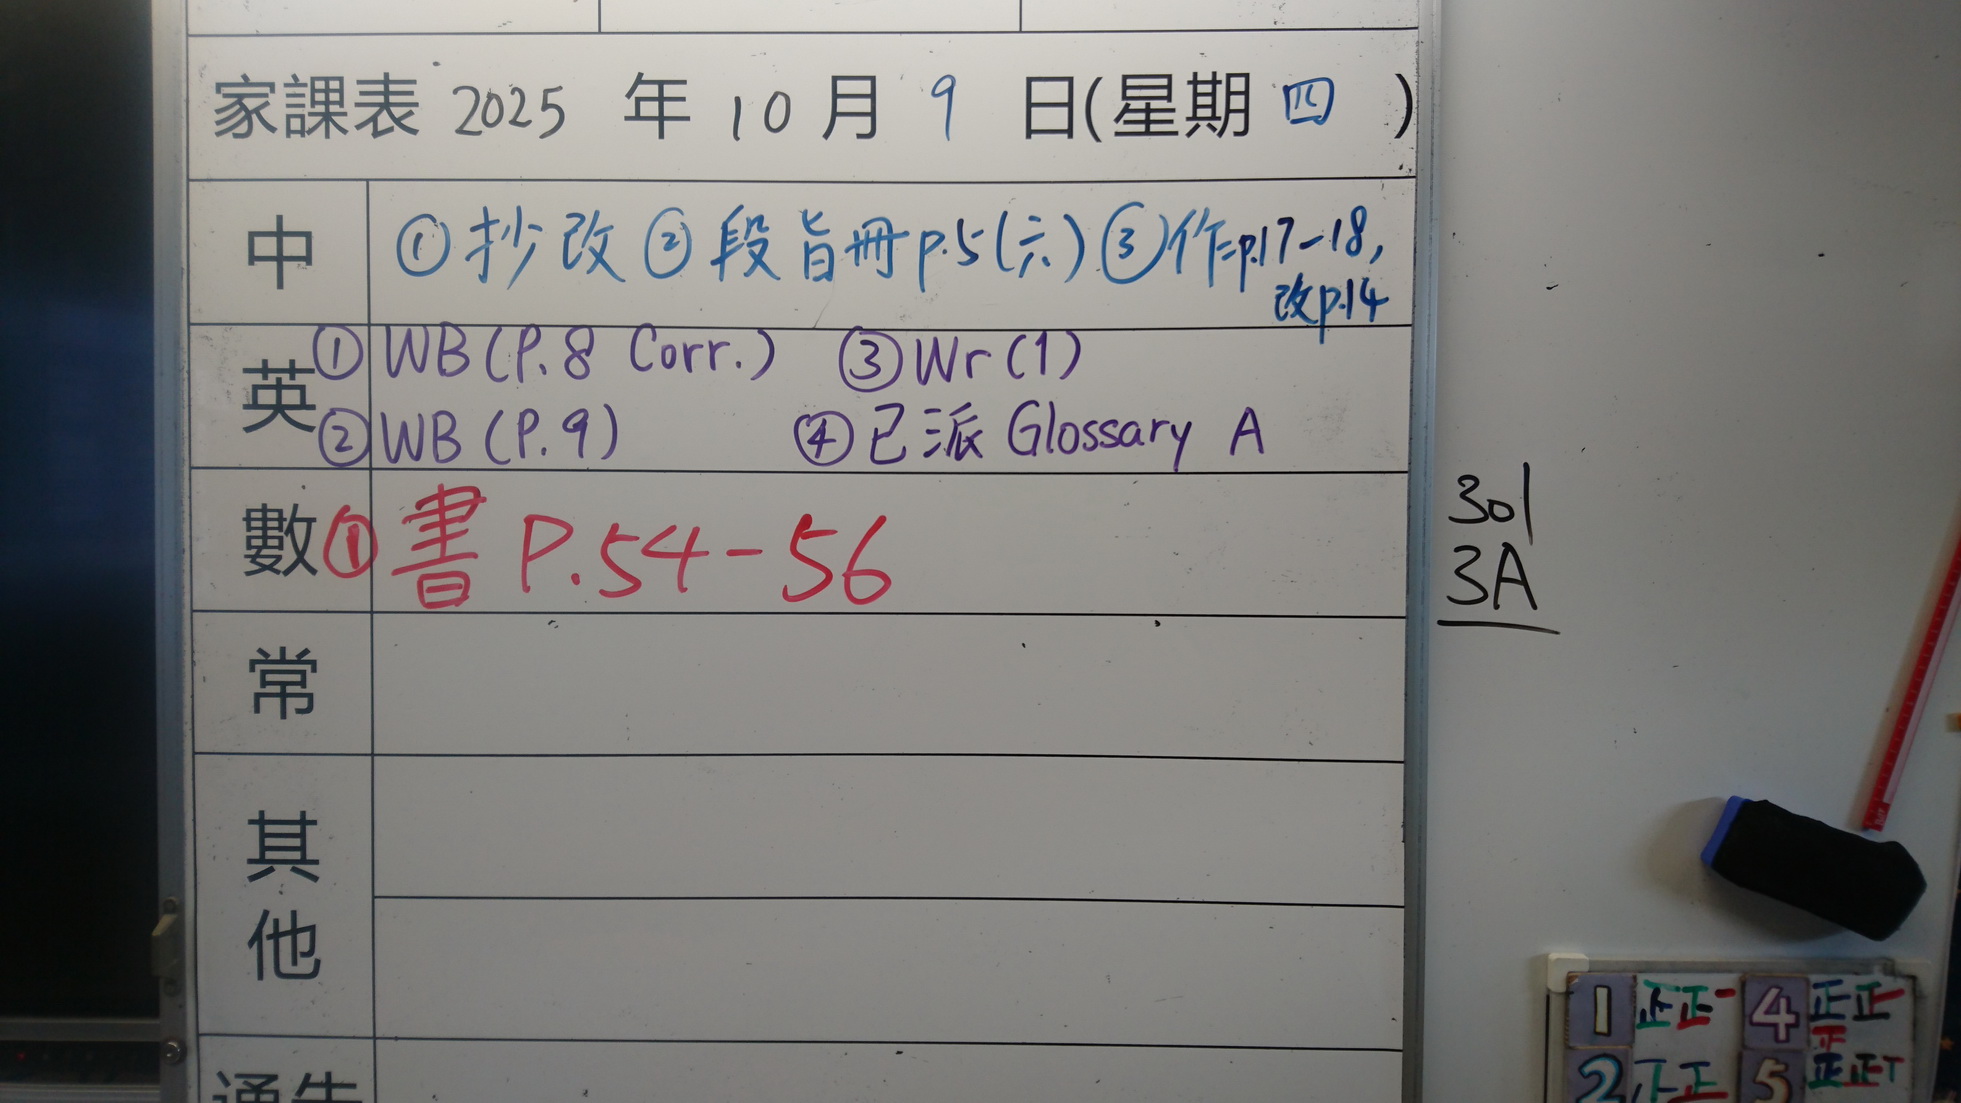 家課表 2025 年 10 月 9 日(星期 四 )
中 ① 抄改 ② 段旨冊 p.5(六) ③ 作=p.17-18,
改p.14
英 ① WB (P.8 Corr.) ③ Wr (1)
② WB (P.9) ④ 已派 Glossary A
數 ① 書 P.54-56
常
其他
通告
301
3A
1 正正一 4 正正一
正
2 正正 5 正正丅